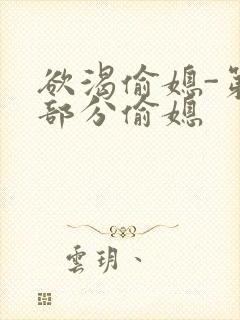 欲渴偷媳-第
部分偷媳
雲玥、